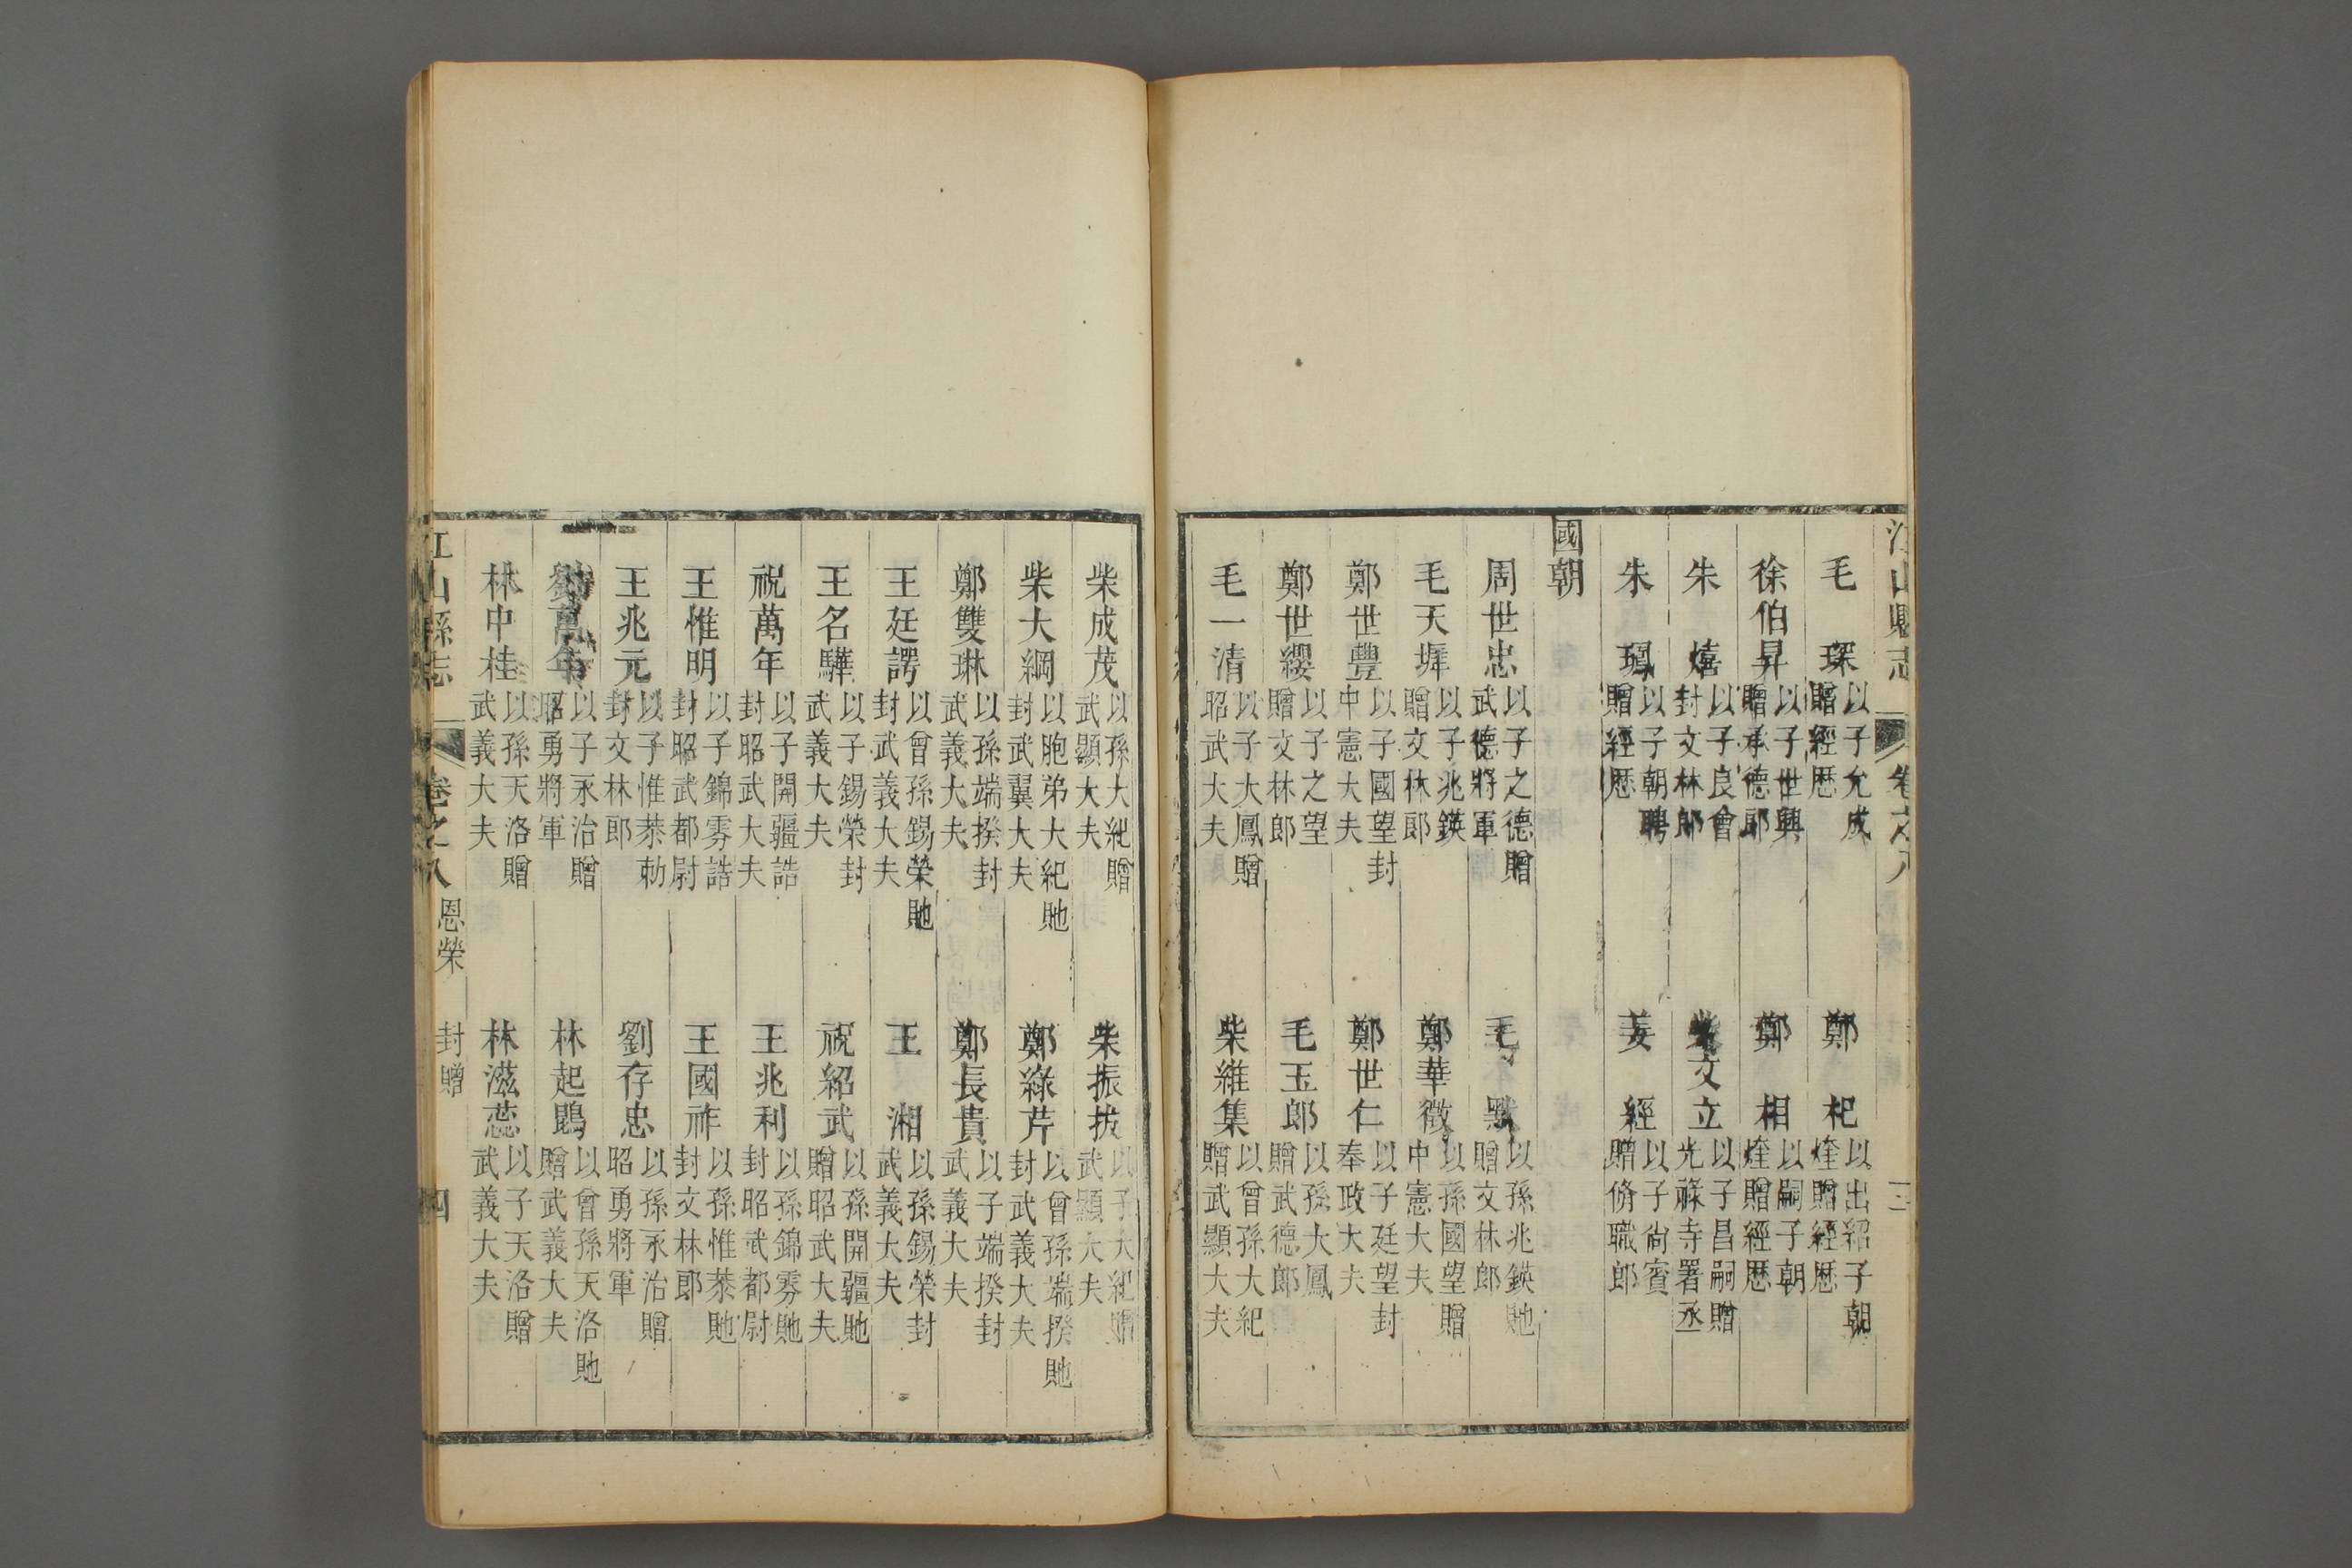 江山縣志 卷之八 三
毛琛 以子允成贈經歷 鄭杞 以出紹子朝煃贈經歷
徐伯昇 以子世興贈承德郎 鄭相 以嗣子朝煃贈經歷
朱熺 以子良會封文林郎 柴文立 以子昌嗣贈光祿寺署丞
朱 以子朝聘贈經歷 姜經 以子尙賓贈脩職郎
國朝
周世忠 以子之德贈武德將軍 毛默 以孫兆鍈貤贈文林郎
毛天墀 以子兆鍈贈文林郎 鄭華徵 以孫國望贈中憲大夫
鄭世豐 以子國望封中憲大夫 鄭世仁 以子廷望封奉政大夫
鄭世纓 以子之望贈文林郎 毛玉郎 以孫大鳳贈武德郎
毛一清 以子大鳳贈昭武大夫 柴維集 以曾孫大紀贈武顯大夫
柴成茂 以孫大紀贈武顯大夫 柴振拔 以子大紀贈武顯大夫
柴大綱 以胞弟大紀貤封武翼大夫 鄭綠芹 以曾孫端揆貤封武義大夫
鄭雙琳 以孫端揆封武義大夫 鄭長貴 以子端揆封武義大夫
王廷諤 以曾孫錫榮貤封武義大夫 王湘 以孫錫榮封武義大夫
王名驊 以子錫榮封武義大夫 祝紹武 以孫開疆貤贈昭武大夫
祝萬年 以子開疆誥封昭武大夫 王兆利 以孫錦雰貤封昭武都尉
王惟明 以子錦雰誥封昭武都尉 王國祚 以孫惟菾貤封文林郎
王兆元 以子惟菾勅封文林郎 劉存忠 以孫永治贈昭勇將軍
劉萬年 以子永治贈昭勇將軍 林起鵾 以曾孫天洛貤贈武義大夫
林中桂 以孫天洛贈武義大夫 林滋蕊 以子天洛贈武義大夫
江山縣志 卷之八 恩榮 封贈 四